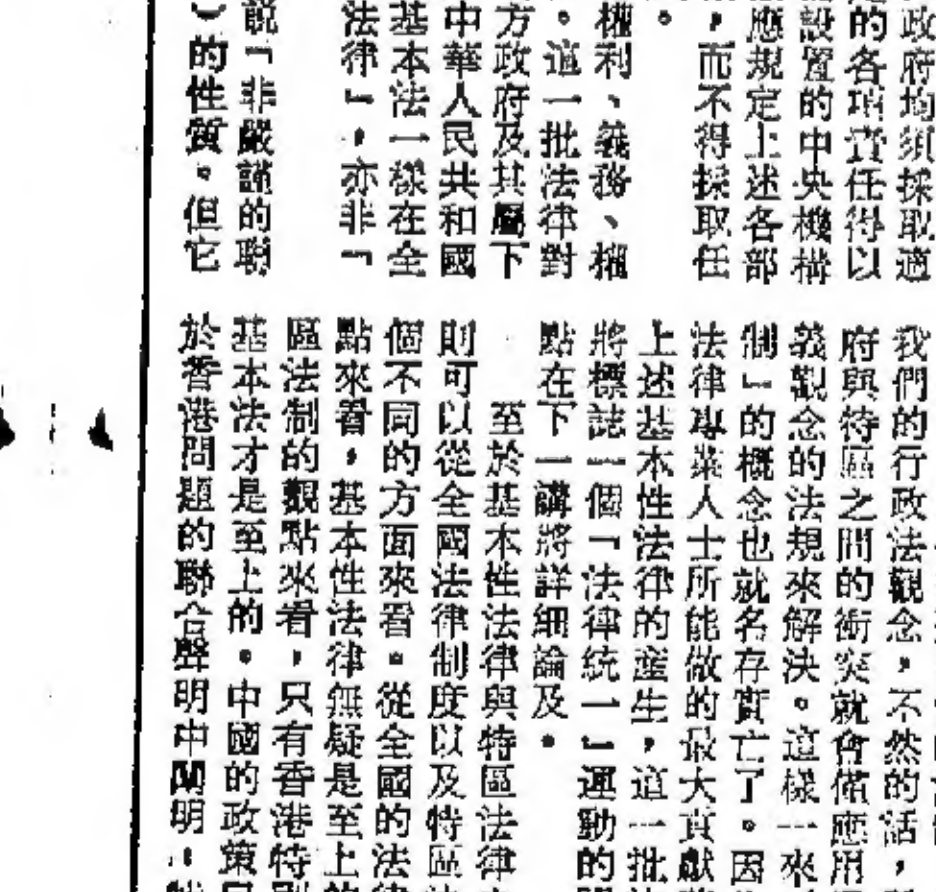 政府均須採取適
的各項責任得以
設置的中央機構
應規定上述各部
，而不得採取任
。
權利、義務、權
。這一批法律對
方政府及其屬下
中華人民共和國
基本法一樣在全
法律」，亦非「
說「非嚴謹的聯
）的性質。但它
我們的行政法觀念，不然的話，
府與特區之間的衝突就會備應用
義觀念的法規來解決。這樣一來
制」的概念也就名存實亡了。因
法律專業人士所能做的最大貢獻
上述基本性法律的產生，這一批
將標誌一個「法律統一」運動的
點在下一講將詳細論及。
至於基本性法律與特區法律
則可以從全國法律制度以及特區
個不同的方面來看。從全國的法律
點來看，基本性法律無疑是至上的
區法制的觀點來看，只有香港特別
基本法才是至上的。中國的政策
於香港問題的聯合聲明中闡明。